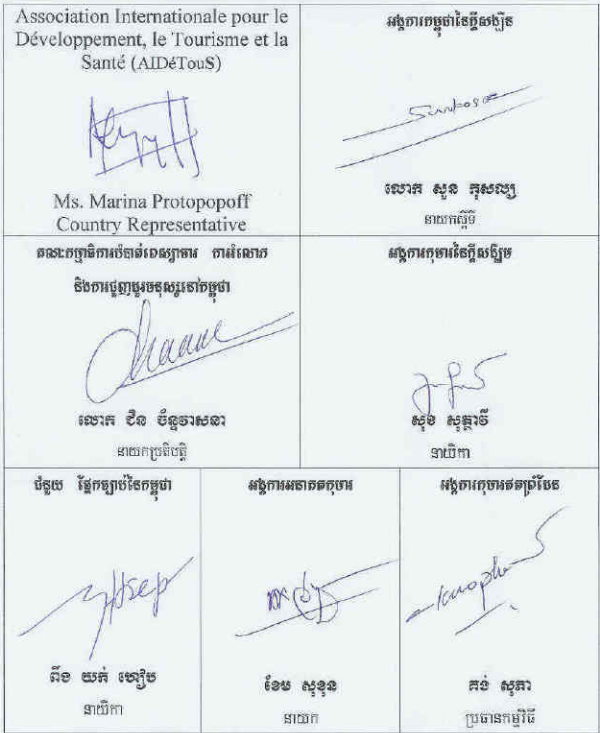 Association Internationale pour le
Développement, le Tourisme et la
Santé (AIDéTouS)
Ms. Marina Protopopoff
Country Representative
អង្គការកម្ពុជានៃក្តីសង្ឃឹម
លោក សួន កុសល្យ
នាយកស្តីទី
គណៈកម្មាធិការបំបាត់ពេស្យាចារ ការរំលោភ
និងការជួញដូរមនុស្សនៅកម្ពុជា
លោក ជិន ច័ន្ទវាសនា
នាយកប្រតិបត្តិ
អង្គការកុមារនៃក្តីសង្ឃឹម
សុខ សុត្ថាវី
នាយិកា
ជំនួយ ផ្នែកច្បាប់នៃកម្ពុជា
ពឹង យក់ ហៀប
នាយិកា
អង្គការអនាគតកុមារ
ខែម សុខុន
នាយក
អង្គការកុមារឥតព្រំដែន
គង់ សុភា
ប្រធានកម្មវិធី